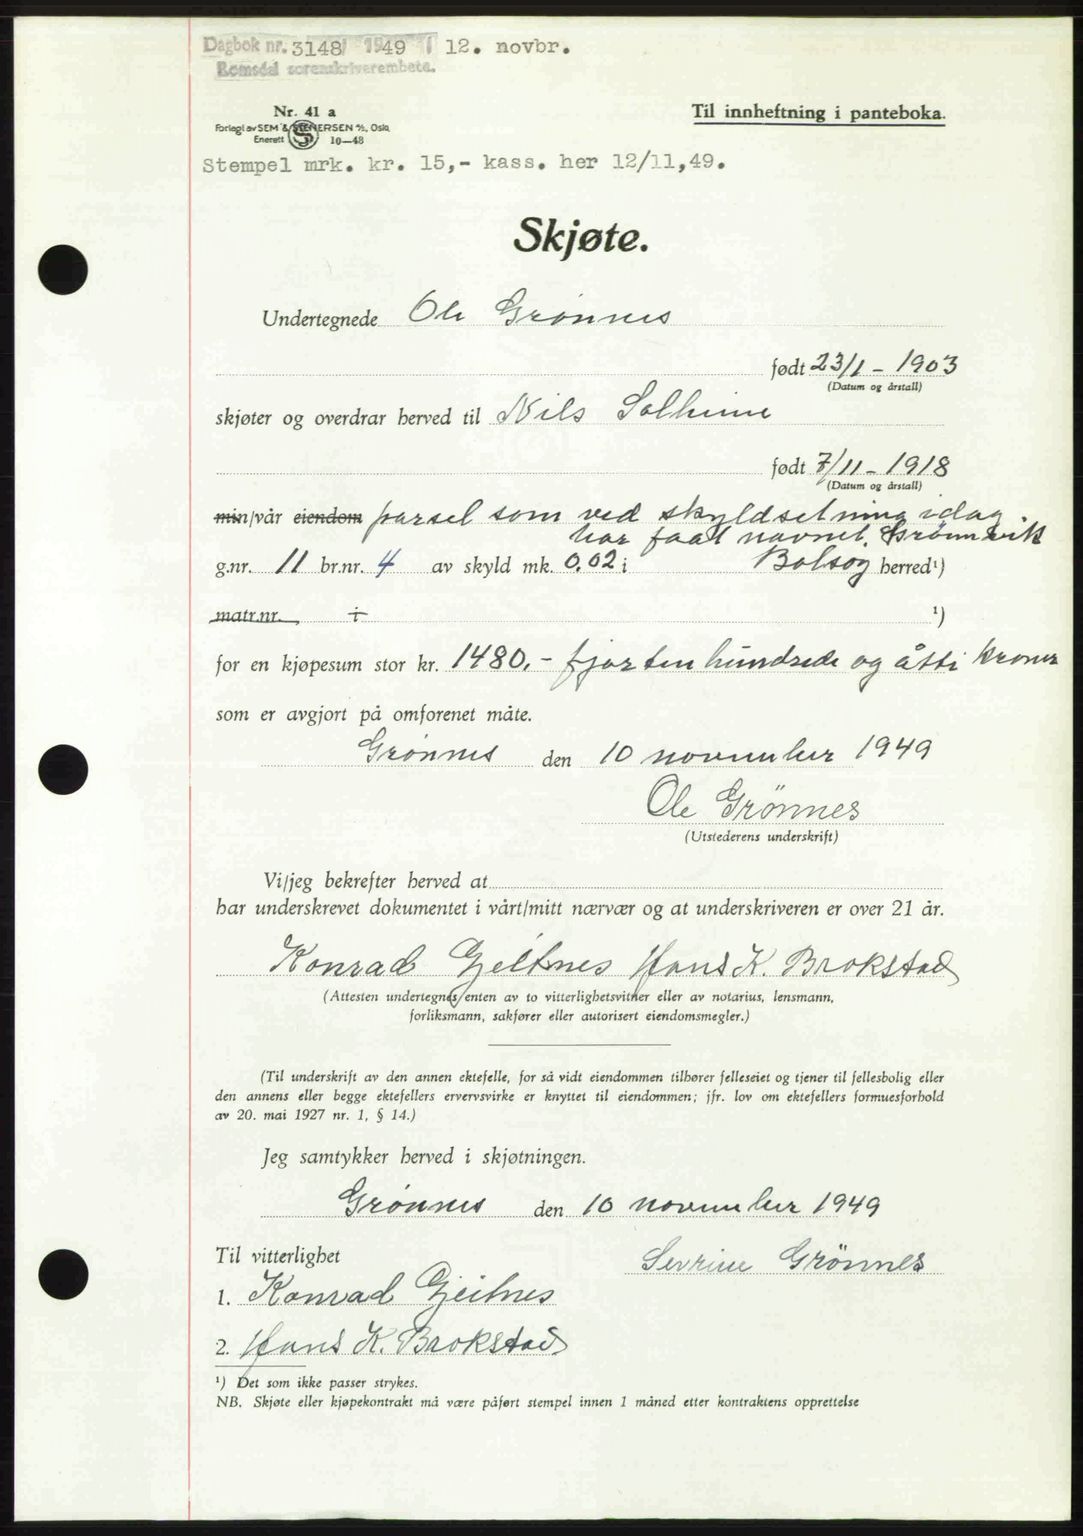 Dagbok nr. 3148/ 1949 12. novbr.
Romsdal sorenskriverembete.
Nr. 41 a
Til innheftning i panteboka.
Forlagt av SEM & STENERSEN A/S, Oslo
Enerett S 10—48
Stempel mrk. kr. 15,- kass. her 12/11,49.
Skjøte.
Undertegnede Ole Grønnes
født 23/1 - 1903
(Datum og årstall)
skjøter og overdrar herved til Nils Solheim
født 7/11 - 1918
(Datum og årstall)
min/vår eiendom parsel som ved skyldsetning idag
har faat navnet Grønnvik
g.nr. 11 br.nr. 4 av skyld mk. 0.02 i Bolsøy herred¹)
matr.nr. i ¹)
for en kjøpesum stor kr. 1480.- fjorten hundrede og åtti kroner
som er avgjort på omforenet måte.
Grønnes den 10 november 1949
Ole Grønnes
(Utstederens underskrift)
Vi/jeg bekrefter herved at
har underskrevet dokumentet i vårt/mitt nærvær og at underskriveren er over 21 år.
Konrad Gjeitnes Hans K. Brokstad
(Attesten undertegnes enten av to vitterlighetsvitner eller av notarius, lensmann,
forliksmann, sakfører eller autorisert eiendomsmegler.)
(Til underskrift av den annen ektefelle, for så vidt eiendommen tilhører felleseiet og tjener til fellesbolig eller
den annens eller begge ektefellers ervervsvirke er knyttet til eiendommen; jfr. lov om ektefellers formuesforhold
av 20. mai 1927 nr. 1, § 14.)
Jeg samtykker herved i skjøtningen.
Grønnes den 10 november 1949
Til vitterlighet
Sevrine Grønnes
1. Konrad Gjeitnes
2. Hans K. Brokstad
¹) Det som ikke passer strykes.
NB. Skjøte eller kjøpekontrakt må være påført stempel innen 1 måned etter kontraktens opprettelse